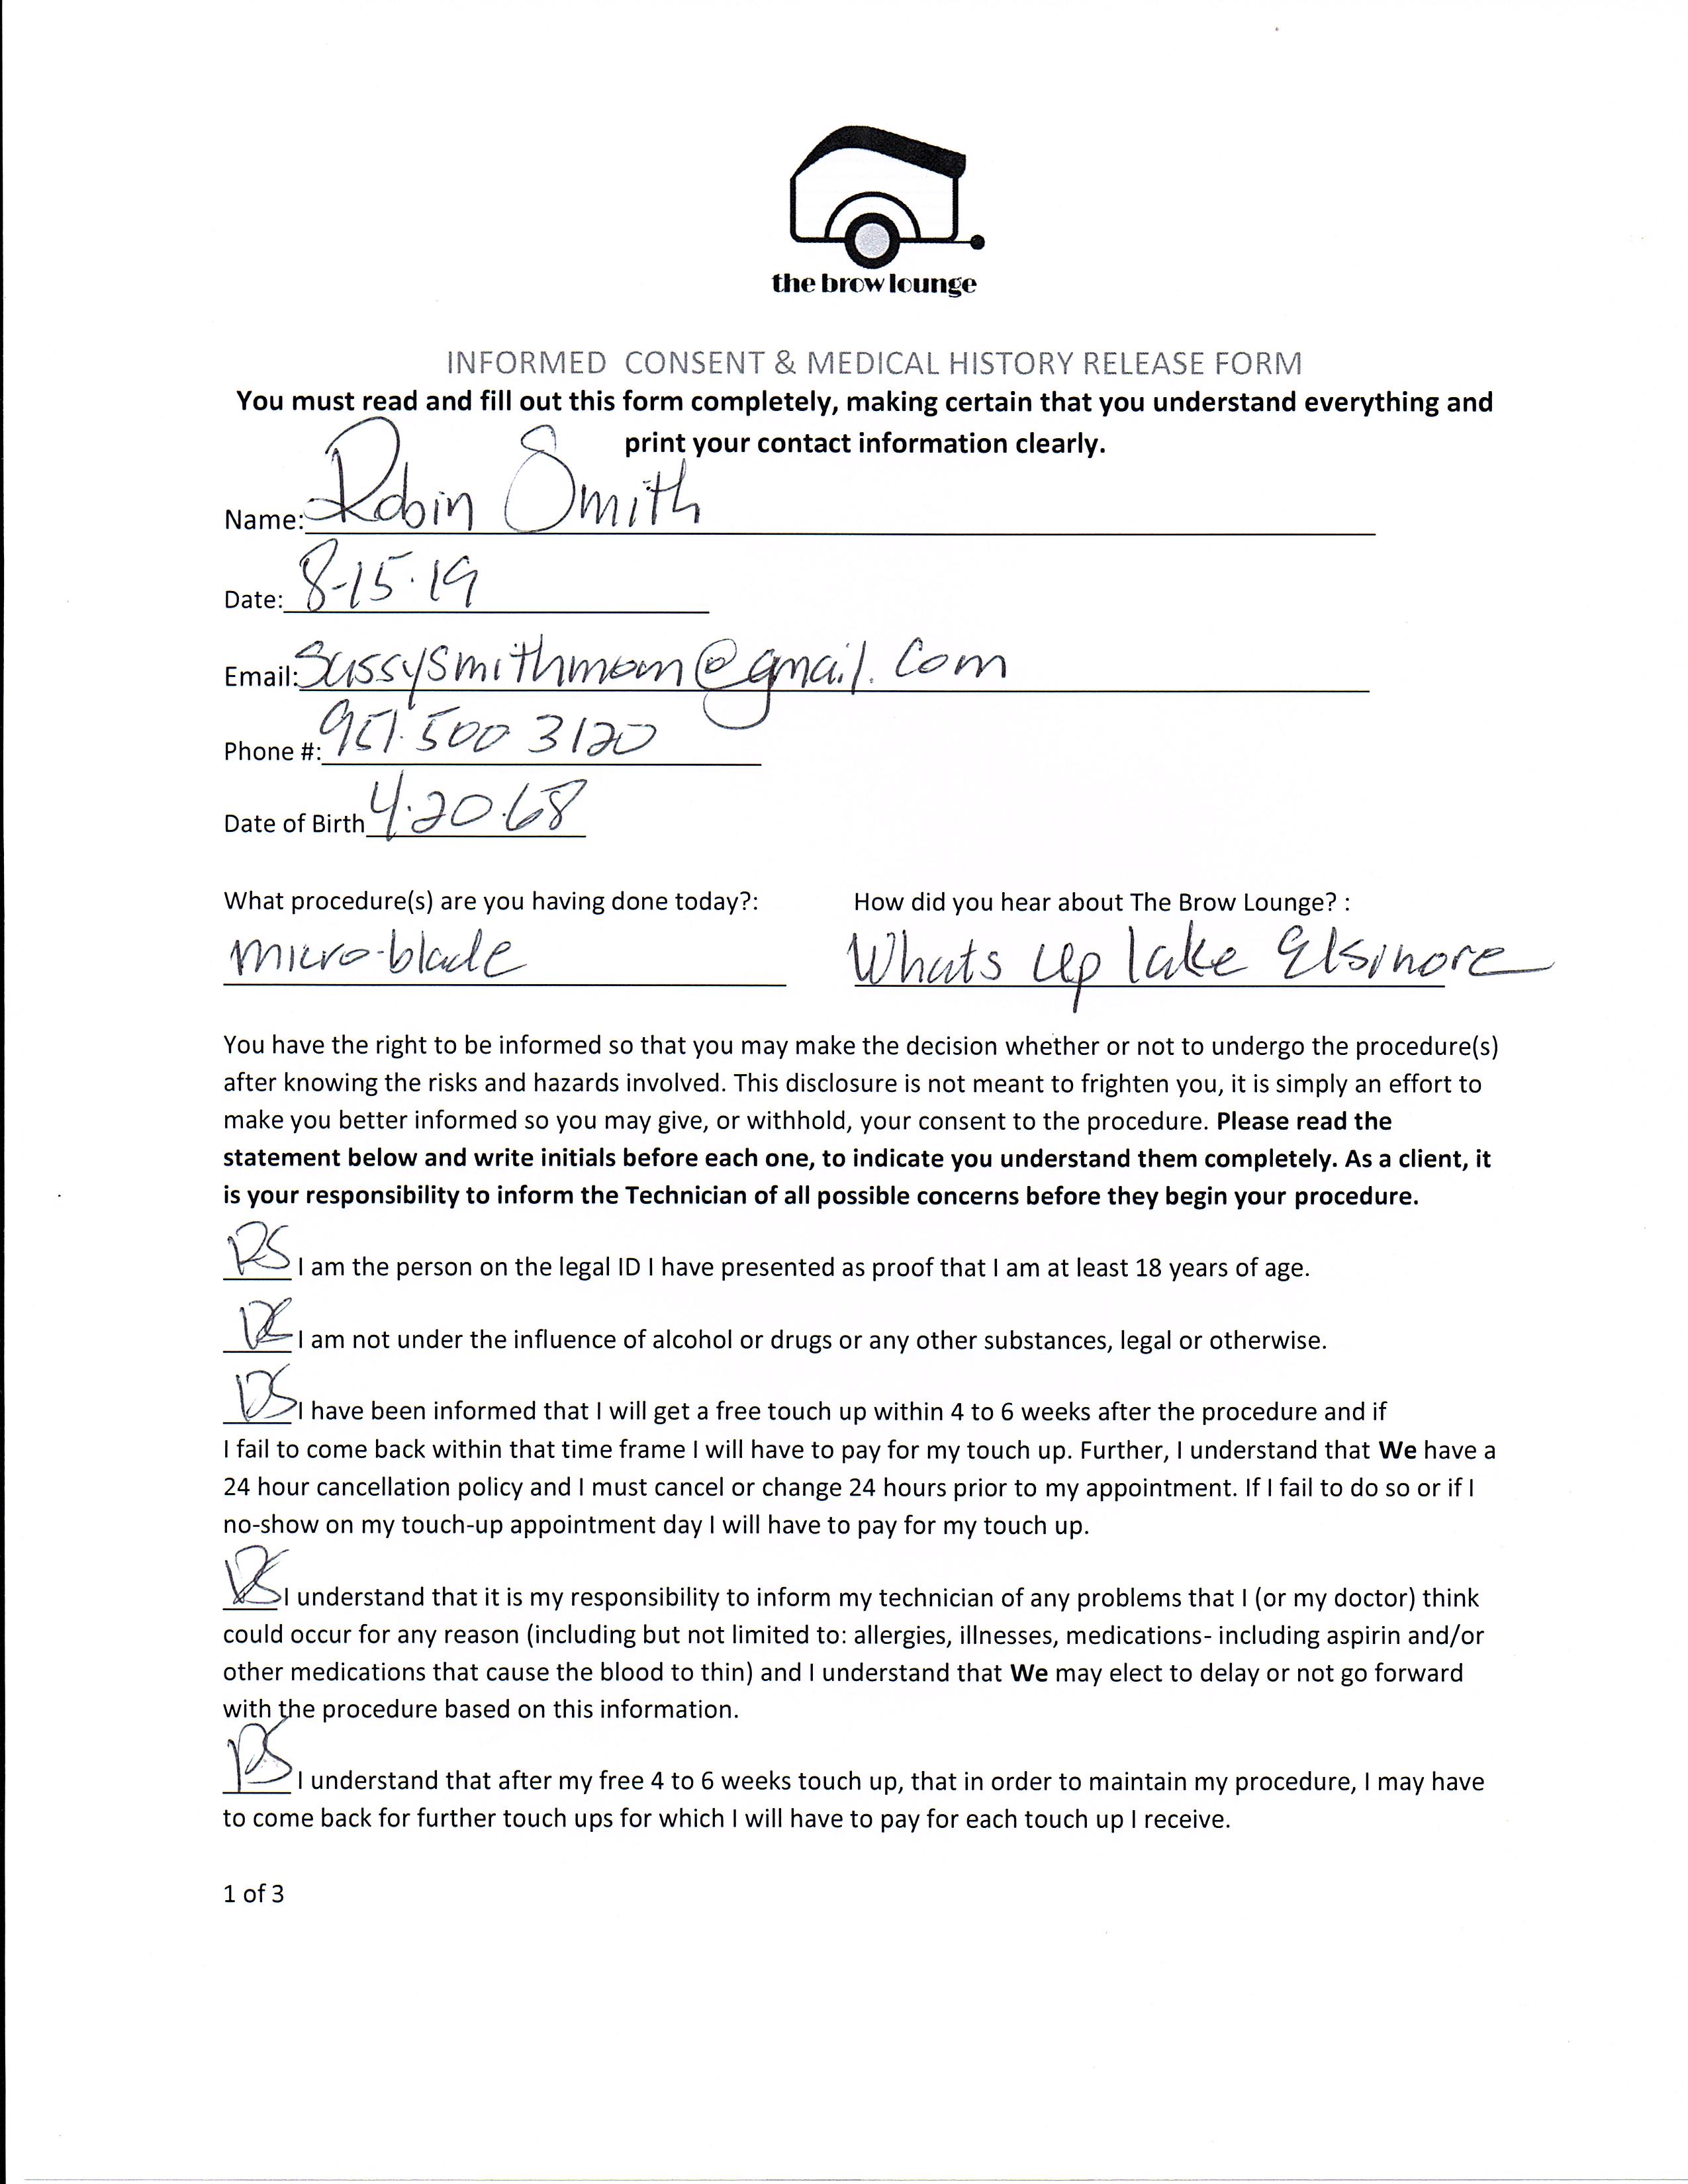 the brow lounge
INFORMED CONSENT & MEDICAL HISTORY RELEASE FORM
You must read and fill out this form completely, making certain that you understand everything and
print your contact information clearly.
Name: Robin Smith
Date: 8-15-19
Email: sassysmithmom@gmail.com
Phone #: 951.500 3120
Date of Birth 4.20.68
What procedure(s) are you having done today?: How did you hear about The Brow Lounge? :
micro-blade Whats up lake Elsinore
You have the right to be informed so that you may make the decision whether or not to undergo the procedure(s)
after knowing the risks and hazards involved. This disclosure is not meant to frighten you, it is simply an effort to
make you better informed so you may give, or withhold, your consent to the procedure. Please read the
statement below and write initials before each one, to indicate you understand them completely. As a client, it
is your responsibility to inform the Technician of all possible concerns before they begin your procedure.
RS I am the person on the legal ID I have presented as proof that I am at least 18 years of age.
RS I am not under the influence of alcohol or drugs or any other substances, legal or otherwise.
RS I have been informed that I will get a free touch up within 4 to 6 weeks after the procedure and if
I fail to come back within that time frame I will have to pay for my touch up. Further, I understand that We have a
24 hour cancellation policy and I must cancel or change 24 hours prior to my appointment. If I fail to do so or if I
no-show on my touch-up appointment day I will have to pay for my touch up.
RS I understand that it is my responsibility to inform my technician of any problems that I (or my doctor) think
could occur for any reason (including but not limited to: allergies, illnesses, medications- including aspirin and/or
other medications that cause the blood to thin) and I understand that We may elect to delay or not go forward
with the procedure based on this information.
RS I understand that after my free 4 to 6 weeks touch up, that in order to maintain my procedure, I may have
to come back for further touch ups for which I will have to pay for each touch up I receive.
1 of 3